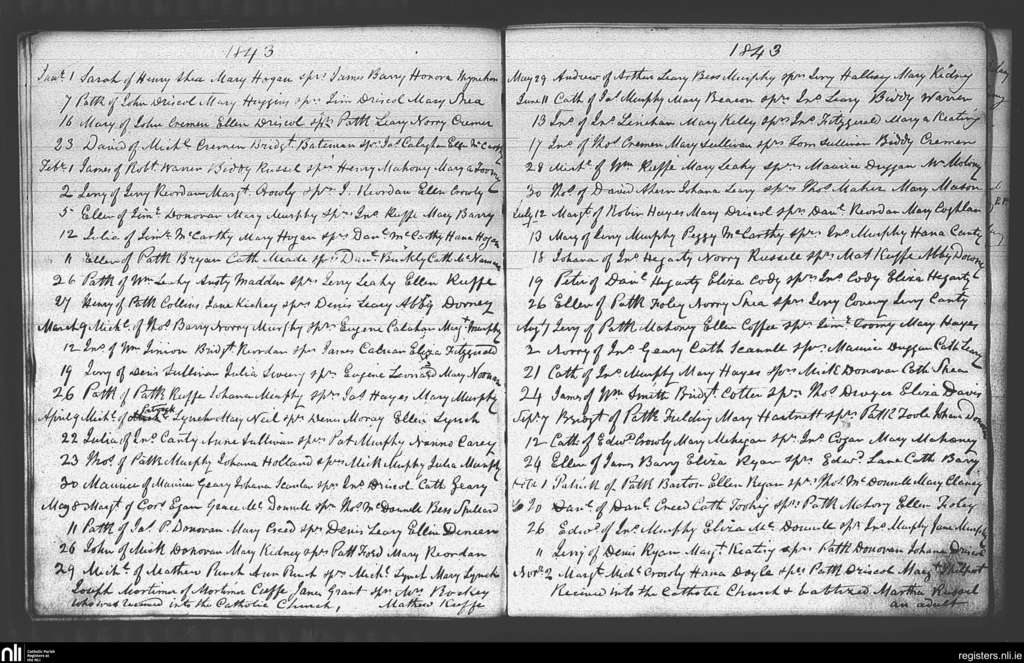 1843
Jany. 1 Sarah of Henry Shea Mary Hogan sprs James Barry Honora
7 Patk of John Driscol Mary Huggins sprs Jim Driscol Mary Shea
16 Mary of John Cremen Ellen Driscol sprs Patk Leary Norry Cremen
23 David of Michl Cremen Bridgt Bateman sprs Jas Calaghan Ellen McCarthy
Feby. 1 James of Robt. Warren Biddy Russel sprs Henry Mahony Mary
2 Jerry of Jerry Reordan Margt. Crowly sprs J. Reordan Ellen Crowly
5 Ellen of Timy. Donovan Mary Murphy sprs Jno Keffe Mary Barry
12 Julia of Timy. McCarthy Mary Hogan sprs Danl McCarthy Hana Hogan
11 Ellen of Patk Bryan Cath Meade sprs Danl. Buckly Cath McNamara
26 Patk of Wm Leahy Ansty Madden sprs Jerry Leahy Ellen Keffe
27 Henry of Patk Collins Jane Hickey sprs Denis Leary Abby Dorney
March 9 Michl. of Thos Barry Norry Murphy sprs Eugene Calahan Margt Murphy
12 Jno of Wm Bridgt. Reordan sprs James Eliza Fitzgerald
19 Jerry of Denis Sullivan Julia sprs Eugene Leonard Mary Noonan
26 Patk of Patk Keffe Johana Murphy sprs Jas Hayes Mary Murphy
April 9 Michl. of Patrick Lynch Mary Neil sprs Denis Moray Ellen Lynch
22 Julia of Jno Canty Anne Sullivan sprs Pat Murphy Nanno Carey
23 Thos. of Patk Murphy Johana Holland sprs Mick Murphy Julia Murphy
30 Maurice of Maurice Geary Johana Scanlan sprs Jno Driscol Cath Geary
May 8 Margt. of Cors Egan Grace Mc Donnell sprs Thos McDonnell Bess
11 Patk of Jas. P. Donovan Mary Creed sprs Denis Leary Ellen Dineen
26 John of Mick Donovan Mary Kidney sprs Patk Ford Mary Reordan
29 Michl. of Mathew Punch Ann Punch sprs Michl. Lynch Mary Lynch
Joseph Mortimer of Mortimer Janes Grant sprs Mrs
who was received into the Catholic Church, Mathew Keffe
1843
May 29 Andrew of Arthur Leary Bess Murphy sprs Jerry Hallisay Mary Kidney
June 11 Cath of Jas Murphy Mary Beacon sprs Jno Leary Biddy Warren
13 Jno of Jno Linehan Mary Kelly sprs Jno Fitzgerald Mary A Keating
17 Jno of Thos Cremen Mary Sullivan sprs Tom Sullivan Biddy Cremen
28 Michl. of Wm Keffe Mary Leahy sprs Maurice Duggan
30 Thos of David Ahern Johana Leary sprs Thos Maher Mary Mason
July 12 Margt of Robin Hayes Mary Driscol sprs Danl. Reordan Mary Coghlan
13 Mary of Jerry Murphy Peggy McCarthy sprs Jno Murphy Hana Canty
18 Johana of Jno Hegarty Norry Russell sprs Mat Keffe Abby
19 Peter of Danl Hegarty Eliza Cody sprs Jno Cody Eliza Hegarty
26 Ellen of Patk Foley Norry Shea sprs Jerry Jerry Canty
Augt 1 Jerry of Patk Mahony Ellen Coffee sprs Timy Toomy Mary Hayes
2 Norry of Jno Geary Cath Scannell sprs Maurice Duggan Cath Leary
21 Cath of Jno Murphy Mary Hayes sprs Mick Donovan Cath Shea
24 Jams of Wm Smith Bridgt. Cotter sprs Thos Dwyer Eliza Davis
Sepr 7 Bridgt of Patk Fielding Mary Hartnett sprs Patk Toole Johana
12 Cath of Edwd Crowly Mary Mehegan sprs Jno Cogan Mary Mahony
24 Ellen of Jams Barry Eliza Ryan sprs Edwd. Lane Cath Barry
Octr 1 Patrick of Patk Barton Ellen Regan sprs Thos McDonnell Mary Clancy
Danl of Danl. Creed Cath sprs Patk Mahony Ellen Foley
26 Edwd of Jno Murphy Eliza Mc Donnell sprs Jno Murphy Jane Murphy
11 Jerry of Denis Ryan Margt. Keating sprs Patk Donovan Johana Driscol
Novr. 2 Margt. Michl Crowly Hana Doyle sprs Patk Driscol Margt. Philpot
Received into the Catholic Church & baptized Martha Russel
an adult
nli
Catholic Parish
Registers at
the NLI
registers.nli.ie